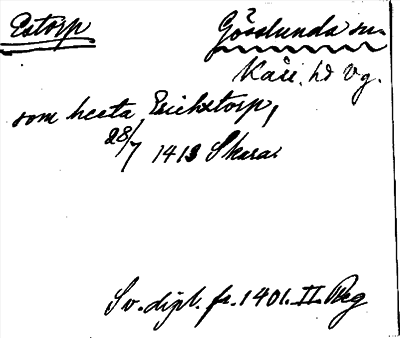 Estorp
Gösslunda sn.
Kåll. hd Vg.
som hesta Erichstorp,
28/7 1413 Skara
Sv. dipl. fr. 1401. II. Reg